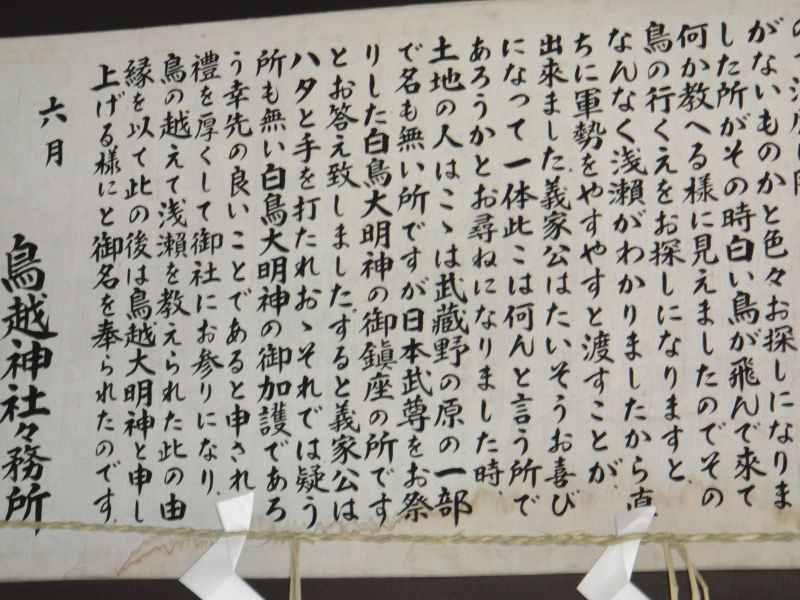 がないものかと色々お探しになりま
した所がその時白い鳥が飛んで来て
何か教へる様に見えましたのでその
鳥の行くえをお探しになりますと、
なんなく浅瀬がわかりましたから直
ちに軍勢をやすやすと渡すことが
出來ました。義家公はたいそうお喜び
になって一体此こは何んと言う所で
あろうかとお尋ねになりました時、
土地の人はこゝは武蔵野の原の一部
で名も無い所ですが日本武尊をお祭
りした白鳥大明神の御鎮座の所です
とお答え致しました。すると義家公は
ハタと手を打たれおゝそれでは疑う
所も無い白鳥大明神の御加護であろ
う幸先の良いことであると申され
禮を厚くして御社にお参りになり、
鳥の越えて浅瀬を教えられた此の由
縁を以て此の後は鳥越大明神と申し
上げる様にと御名を奉られたのです。
六月
鳥越神社々務所